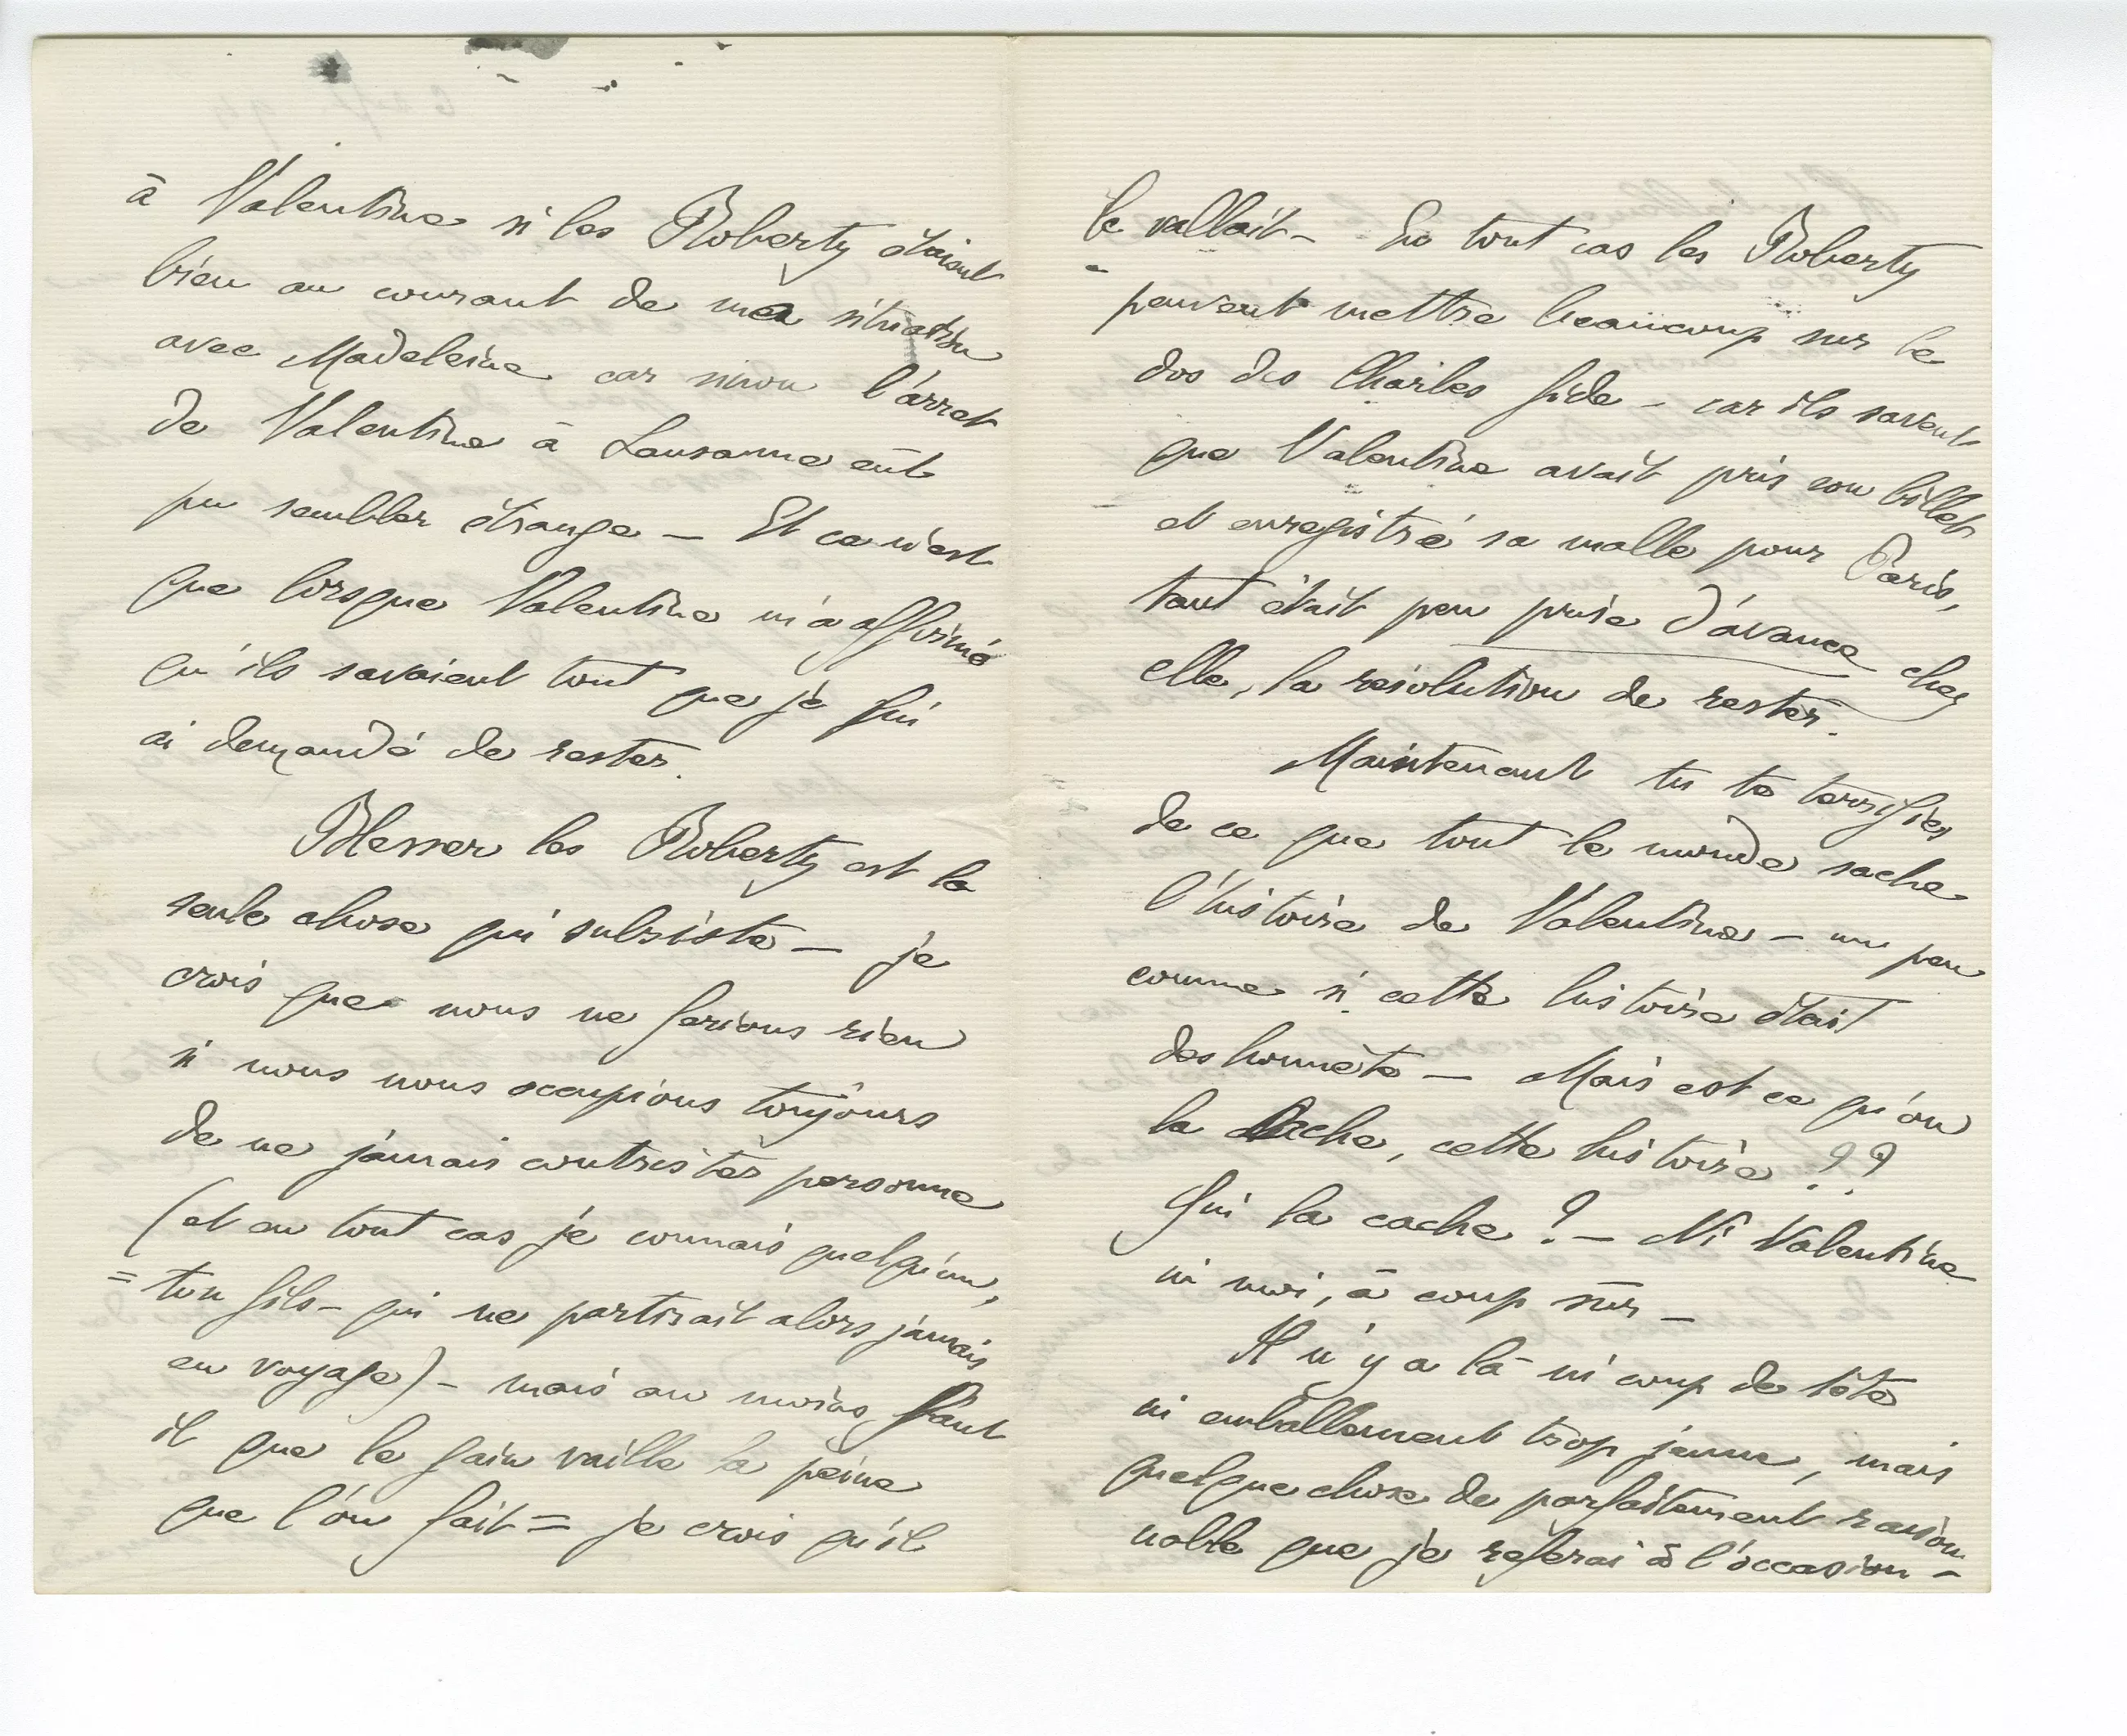 à Valentine si les Roberty étaient
bien au courant de ma situation
avec Madeleine car sinon l'arret
de Valentine à Lausanne eût
pu sembler étrange — Et ce n'est
que lorsque Valentine m'a affirmé
qu'ils savaient tout que je lui
ai demandé de rester.
Blesser les Roberty est la
seule chose qui subsiste — je
crois que nous ne ferions rien
si nous nous occupions toujours
de ne jamais contrister personne
(et en tout cas je connais quelqu'un,
= ton fils – qui ne partirait alors jamais
en voyage) – mais au moins faut
il que le gain vaille la peine
que l'on fait = je crois qu'il
le vallait – En tout cas les Roberty
peuvent mettre beaucoup sur le
dos des Charles Gide – car ils savent
que Valentine avait pris son billet
et enregistré sa malle pour Paris,
tant était peu prise d'avance chez
elle, la résolution de rester.
Maintenant tu te terrifies
de ce que tout le monde sache
l'histoire de Valentine – un peu
comme si cette histoire était
deshonnête — Mais est ce qu'on
la cache, cette histoire ??
Qui la cache ? – Ni Valentine
ni moi, à coup sûr –
Il n'y a là ni coup de tête
ni emballement trop jeune, mais
quelque chose de parfaitement raison
nable que je referai à l'occasion –